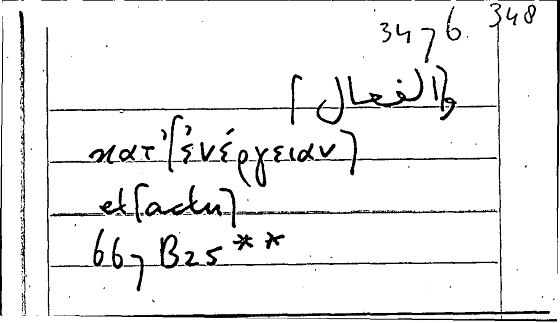 3476 348
[والفعال]
κατ' [ἐνέργειαν]
et [actu]
667 B25 **